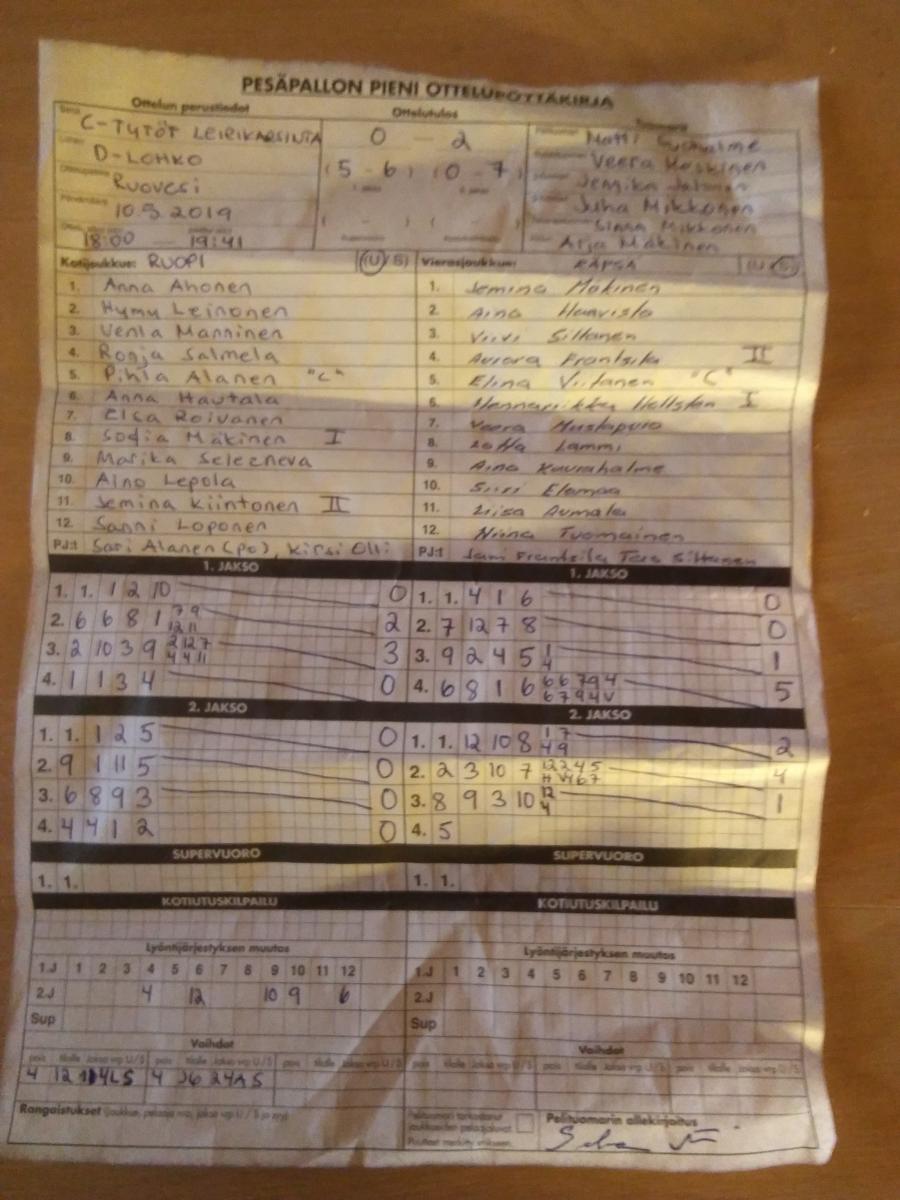 PESÄPALLON PIENI OTTELUPÖYTÄKIRJA
Ottelun perustiedot Ottelutulos
C-TYTÖT LEIRIKARSINTA 0 - 2
D-LOHKO (5 - 6) (0 - 7) Veera Koskinen
Ruovesi ( - ) ( - ) Juha Mikkonen
10.5.2019 Mikkonen
18:00 — 19:41 Arja Mäkinen
Kotijoukkue: RUOPI (U/S) Vierasjoukkue: (U/S)
1. Anna Ahonen 1. Jemina Mäkinen
2. Hymy Leinonen 2. Aino Haavisto
3. Venla Manninen 3. Viivi Siltanen
4. Ronja Salmela 4. Aurora Frantsila II
5. Pihla Alanen "C" 5. Elina Viitanen "C"
6. Anna Hautala 6. Hellsten I
7. Elsa Roivanen 7. Veera Mustapuro
8. Sofia Mäkinen I 8. Lotta Lammi
9. Marika Selezneva 9. Aino
10. Aino Lepola 10. Siiri Elomaa
11. Jemina Kiintonen II 11. Liisa Aumala
12. Sanni Loponen 12. Niina Tuomainen
PJ:t Sari Alanen (po), Kirsi Olli PJ:t Jani Frantsila Siltanen
1. JAKSO 1. JAKSO
1. 1. 1 2 10 0 1. 1. 4 1 6 0
2. 6 6 8 1 7 9 12 11 2 2. 7 12 7 8 0
3. 2 10 3 9 2 12 7 4 4 11 3 3. 9 2 4 5 1 4 1
4. 1 1 3 4 0 4. 6 8 1 6 6 6 7 9 4 6 7 9 4 V 5
2. JAKSO 2. JAKSO
1. 1. 1 2 5 0 1. 1. 12 10 8 1 7 4 9 2
2. 9 1 11 5 0 2. 2 3 10 7 12 2 4 5 4
3. 6 8 9 3 0 3. 8 9 3 10 12 4 1
4. 4 4 1 2 0 4. 5
SUPERVUORO SUPERVUORO
1. 1. 1. 1.
KOTIUTUSKILPAILU KOTIUTUSKILPAILU
Lyöntijärjestyksen muutos Lyöntijärjestyksen muutos
1.J 1 2 3 4 5 6 7 8 9 10 11 12 1.J 1 2 3 4 5 6 7 8 9 10 11 12
2.J 4 12 10 9 6 2.J
Sup Sup
Vaihdot Vaihdot
pois tilalle Jakso vrp U/S pois tilalle Jakso vrp U/S pois tilalle Jakso vrp U/S pois tilalle Jakso vrp U/S pois tilalle Jakso vrp U/S pois tilalle Jakso vrp U/S
4 12
Rangaistukset (joukkue, pelaaja nro, jakso vrp U / S ja syy) Pelituomari tarkastanut Pelituomarin allekirjoitus
joukkueiden pelaajaluvat
Puutteet merkitty